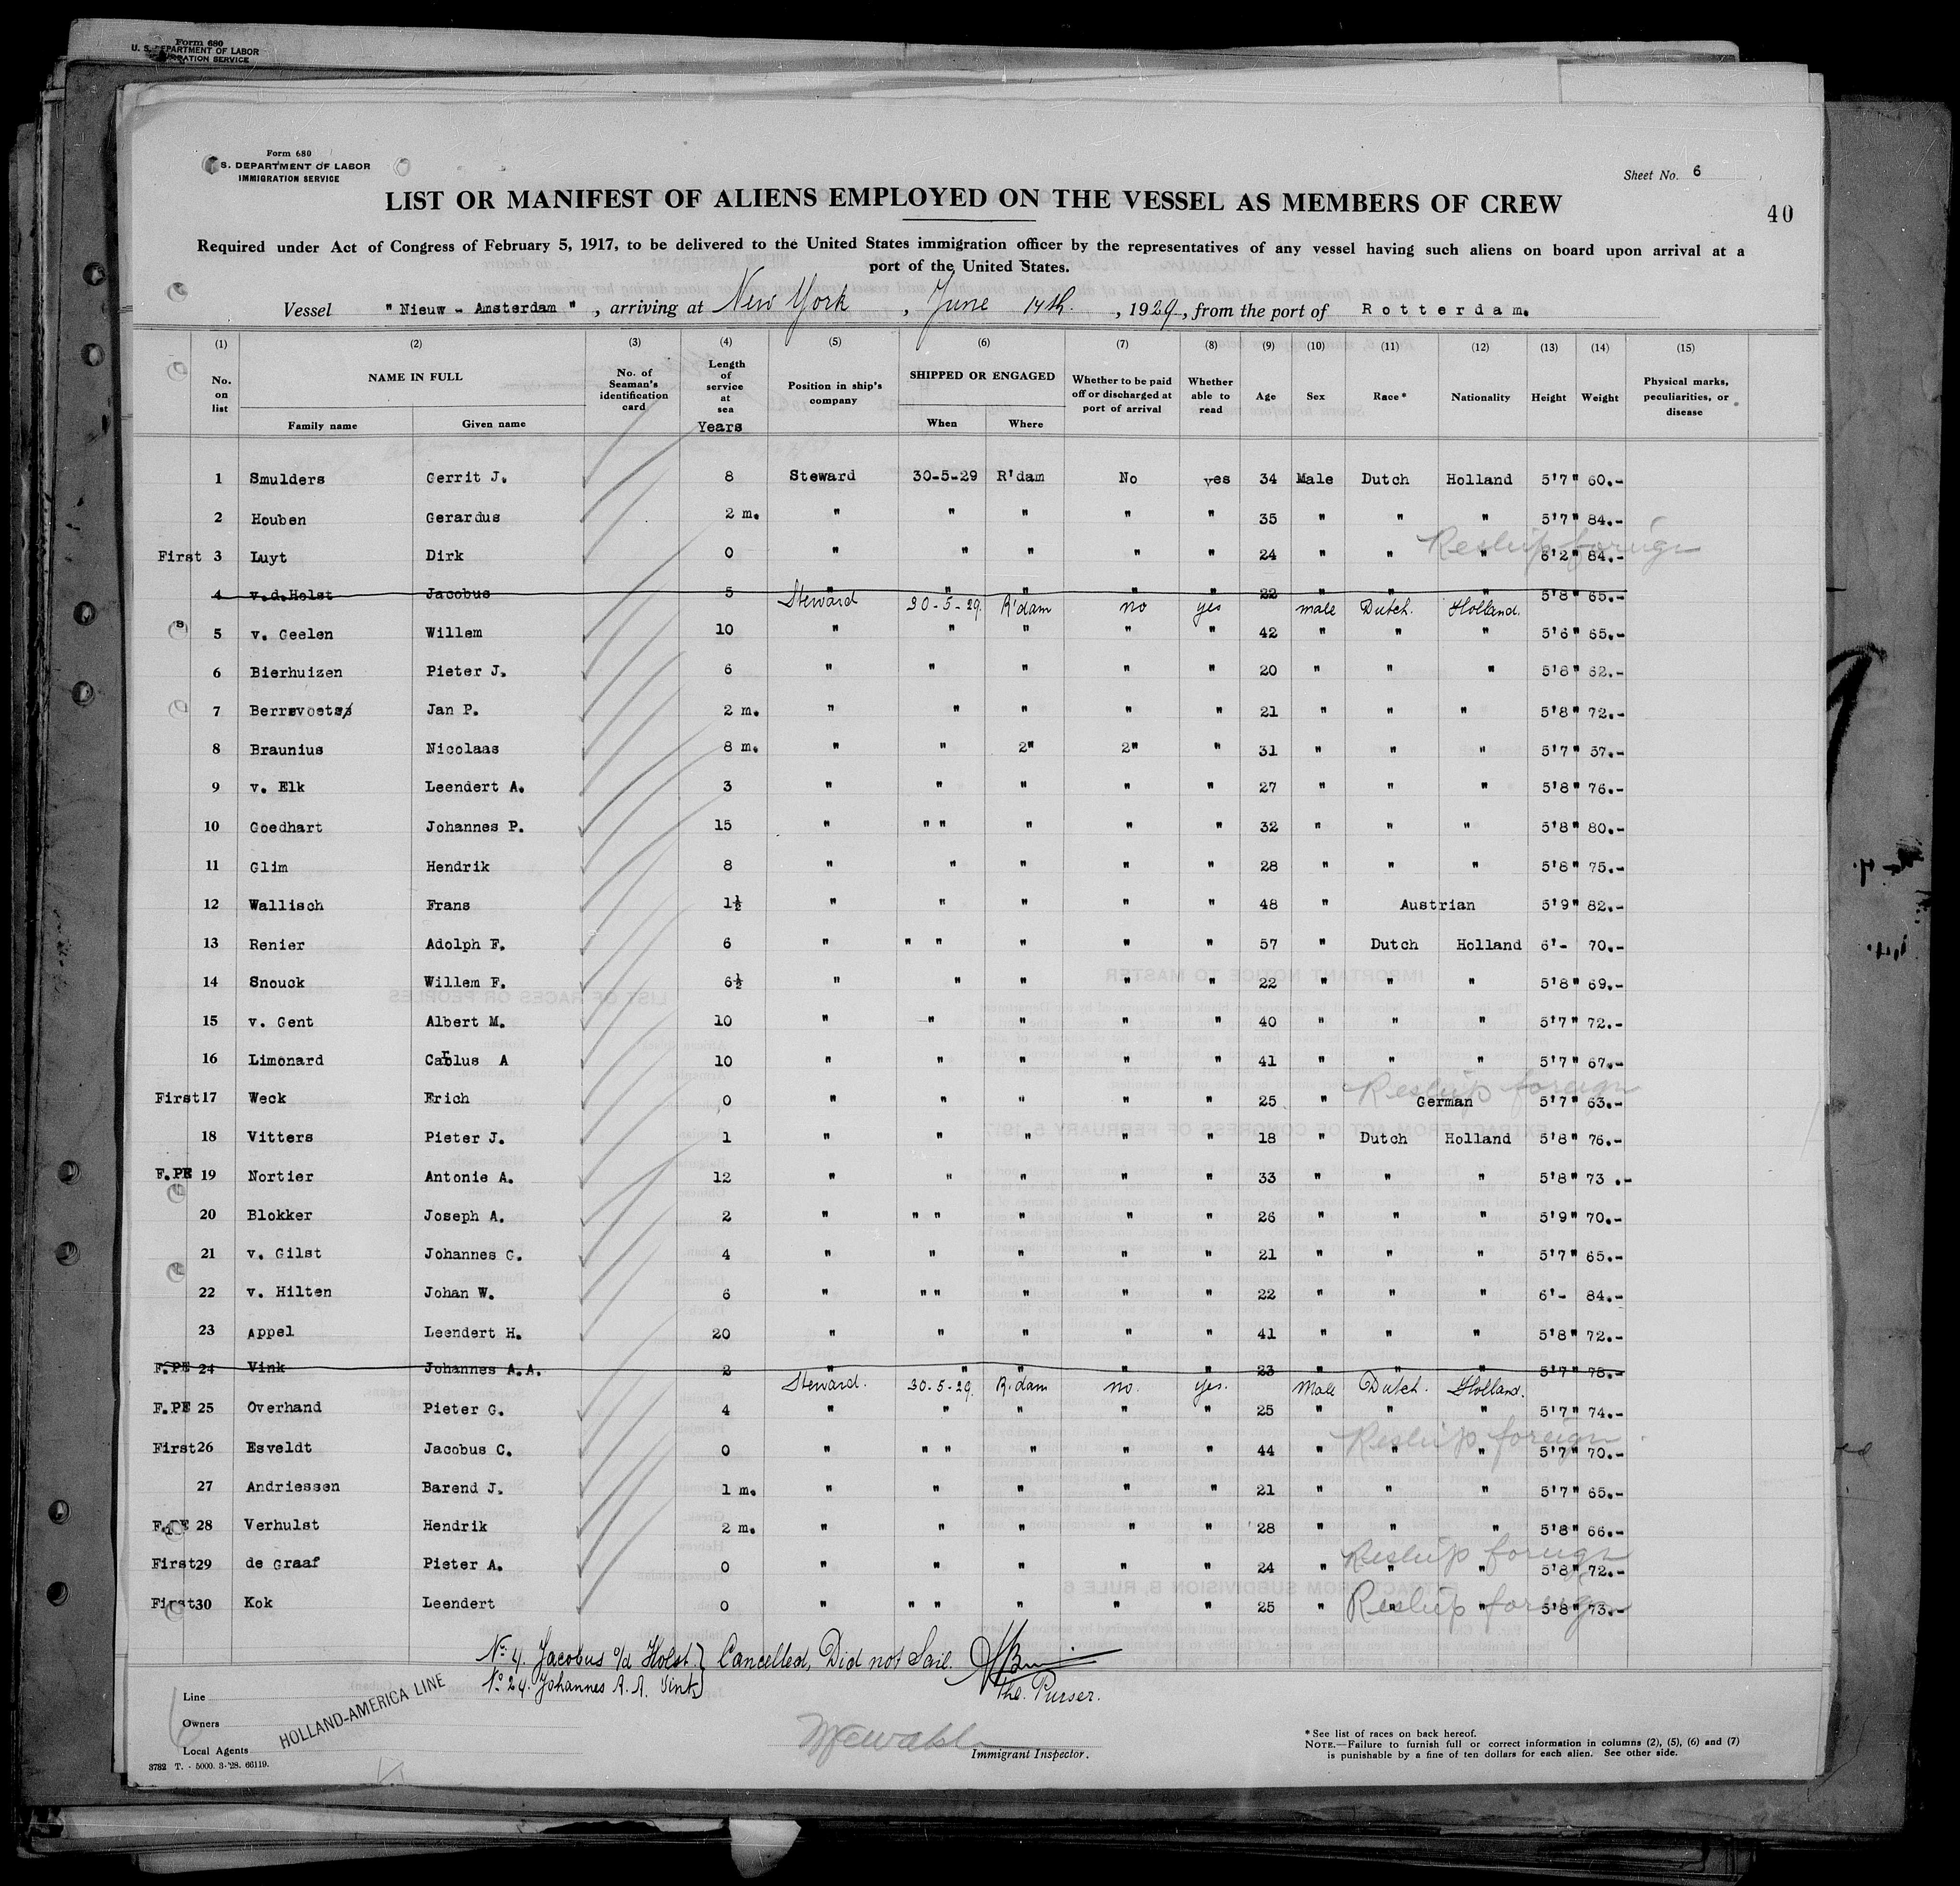 Form 680
U. S. DEPARTMENT OF LABOR
IMMIGRATION SERVICE
Form 680
S. DEPARTMENT OF LABOR
IMMIGRATION SERVICE
Sheet No. 6
LIST OR MANIFEST OF ALIENS EMPLOYED ON THE VESSEL AS MEMBERS OF CREW
40
Required under Act of Congress of February 5, 1917, to be delivered to the United States immigration officer by the representatives of any vessel having such aliens on board upon arrival at a
port of the United States.
Vessel "Nieuw - Amsterdam", arriving at New York, June 14th, 1929, from the port of Rotterdam.
(1) (2) (3) (4) (5) (6) (7) (8) (9) (10) (11) (12) (13) (14) (15)
No. on list NAME IN FULL Family name Given name No. of Seaman's identification card Length of service at sea Years Position in ship's company SHIPPED OR ENGAGED When Where Whether to be paid off or discharged at port of arrival Whether able to read Age Sex Race* Nationality Height Weight Physical marks, peculiarities, or disease
1 Smulders Gerrit J. 8 Steward 30-5-29 R'dam No yes 34 Male Dutch Holland 5'7" 60.-
2 Houben Gerardus 2 m. " " " " " 35 " " " 5'7" 84.-
Reship foreign
First 3 Luyt Dirk 0 " " " " " 24 " " " 6'2" 84.-
4 v.d.Holst Jacobus 5 " " " " " 22 " " " 5'8" 65.-
Steward 30-5-29. R'dam no yes male Dutch. Holland.
5 v. Geelen Willem 10 " " " " " 42 " " " 5'6" 65.-
6 Bierhuizen Pieter J. 6 " " " " " 20 " " " 5'8" 62.-
7 Berrevoets Jan P. 2 m. " " " " " 21 " " " 5'8" 72.-
8 Braunius Nicolaas 8 m. " " 2" 2" " 31 " " " 5'7" 57.-
9 v. Elk Leendert A. 3 " " " " " 27 " " " 5'8" 76.-
10 Goedhart Johannes P. 15 " " " " " " 32 " " " 5'8" 80.-
11 Glim Hendrik 8 " " " " " 28 " " " 5'8" 75.-
12 Wallisch Frans 1½ " " " " " 48 " Austrian 5'9" 82.-
13 Renier Adolph F. 6 " " " " " " 57 " Dutch Holland 6'- 70.-
14 Snouck Willem F. 6½ " " " " " 22 " " " 5'8" 69.-
15 v. Gent Albert M. 10 " " " " " 40 " " " 5'7" 72.-
16 Limonard Carlus A 10 " " " " " 41 " " " 5'7" 67.-
Reship foreign
First 17 Weck Erich 0 " " " " " 25 " German 5'7" 63.-
18 Vitters Pieter J. 1 " " " " " 18 " Dutch Holland 5'8" 76.-
F.PE 19 Nortier Antonie A. 12 " " " " " 33 " " " 5'8" 73 .-
20 Blokker Joseph A. 2 " " " " " " 26 " " " 5'9" 70.-
21 v. Gilst Johannes G. 4 " " " " " 21 " " " 5'7" 65.-
22 v. Hilten Johan W. 6 " " " " " " 22 " " " 6'- 84.-
23 Appel Leendert H. 20 " " " " " 41 " " " 5'8" 72.-
F.PE 24 Vink Johannes A.A. 2 " " " " " 23 " " " 5'7" 78.-
Steward. 30-5-29. R.dam no. yes. Male Dutch. Holland.
F.PE 25 Overhand Pieter G. 4 " " " " " 25 " " " 5'7" 74.-
Reship foreign
First 26 Esveldt Jacobus C. 0 " " " " " " 44 " " " 5'7" 70.-
27 Andriessen Barend J. 1 m. " " " " " 21 " " " 5'7" 65.-
F.PE 28 Verhulst Hendrik 2 m. " " " " " 28 " " " 5'8" 66.-
Reship foreign
First 29 de Graaf Pieter A. 0 " " " " " 24 " " " 5'8" 72.-
Reship foreign
First 30 Kok Leendert 0 " " " " " " 25 " " " 5'8" 73.-
No. 4. Jacobus v/d Holst } Cancelled, Did not Sail.
No. 24. Johannes A. A. Vink
the Purser.
Line
Owners HOLLAND-AMERICA LINE
Local Agents
Immigrant Inspector.
3782 T. - 5000. 3-'28. 66119.
*See list of races on back hereof.
NOTE.—Failure to furnish full or correct information in columns (2), (5), (6) and (7)
is punishable by a fine of ten dollars for each alien. See other side.